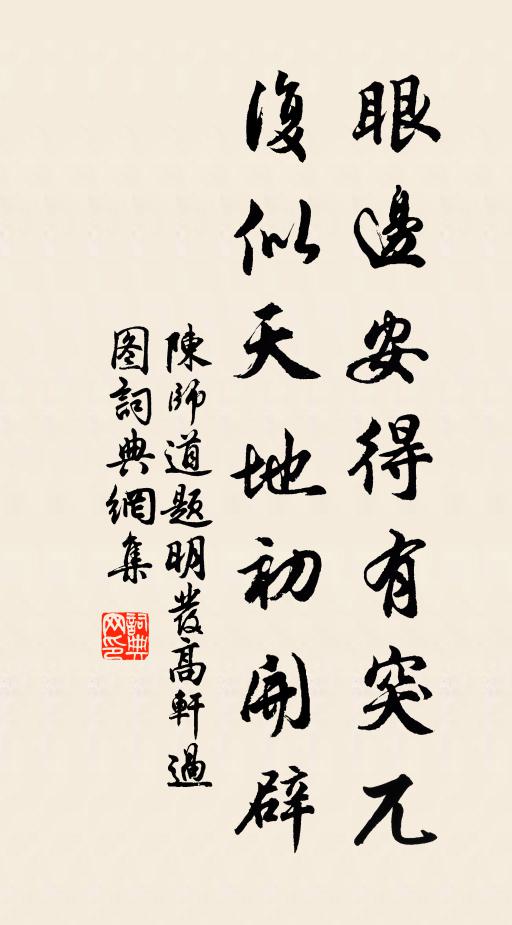 眼邊安得有突兀
復似天地初開辟
陳師道題明發高軒過
图詞典網集
詞典网印